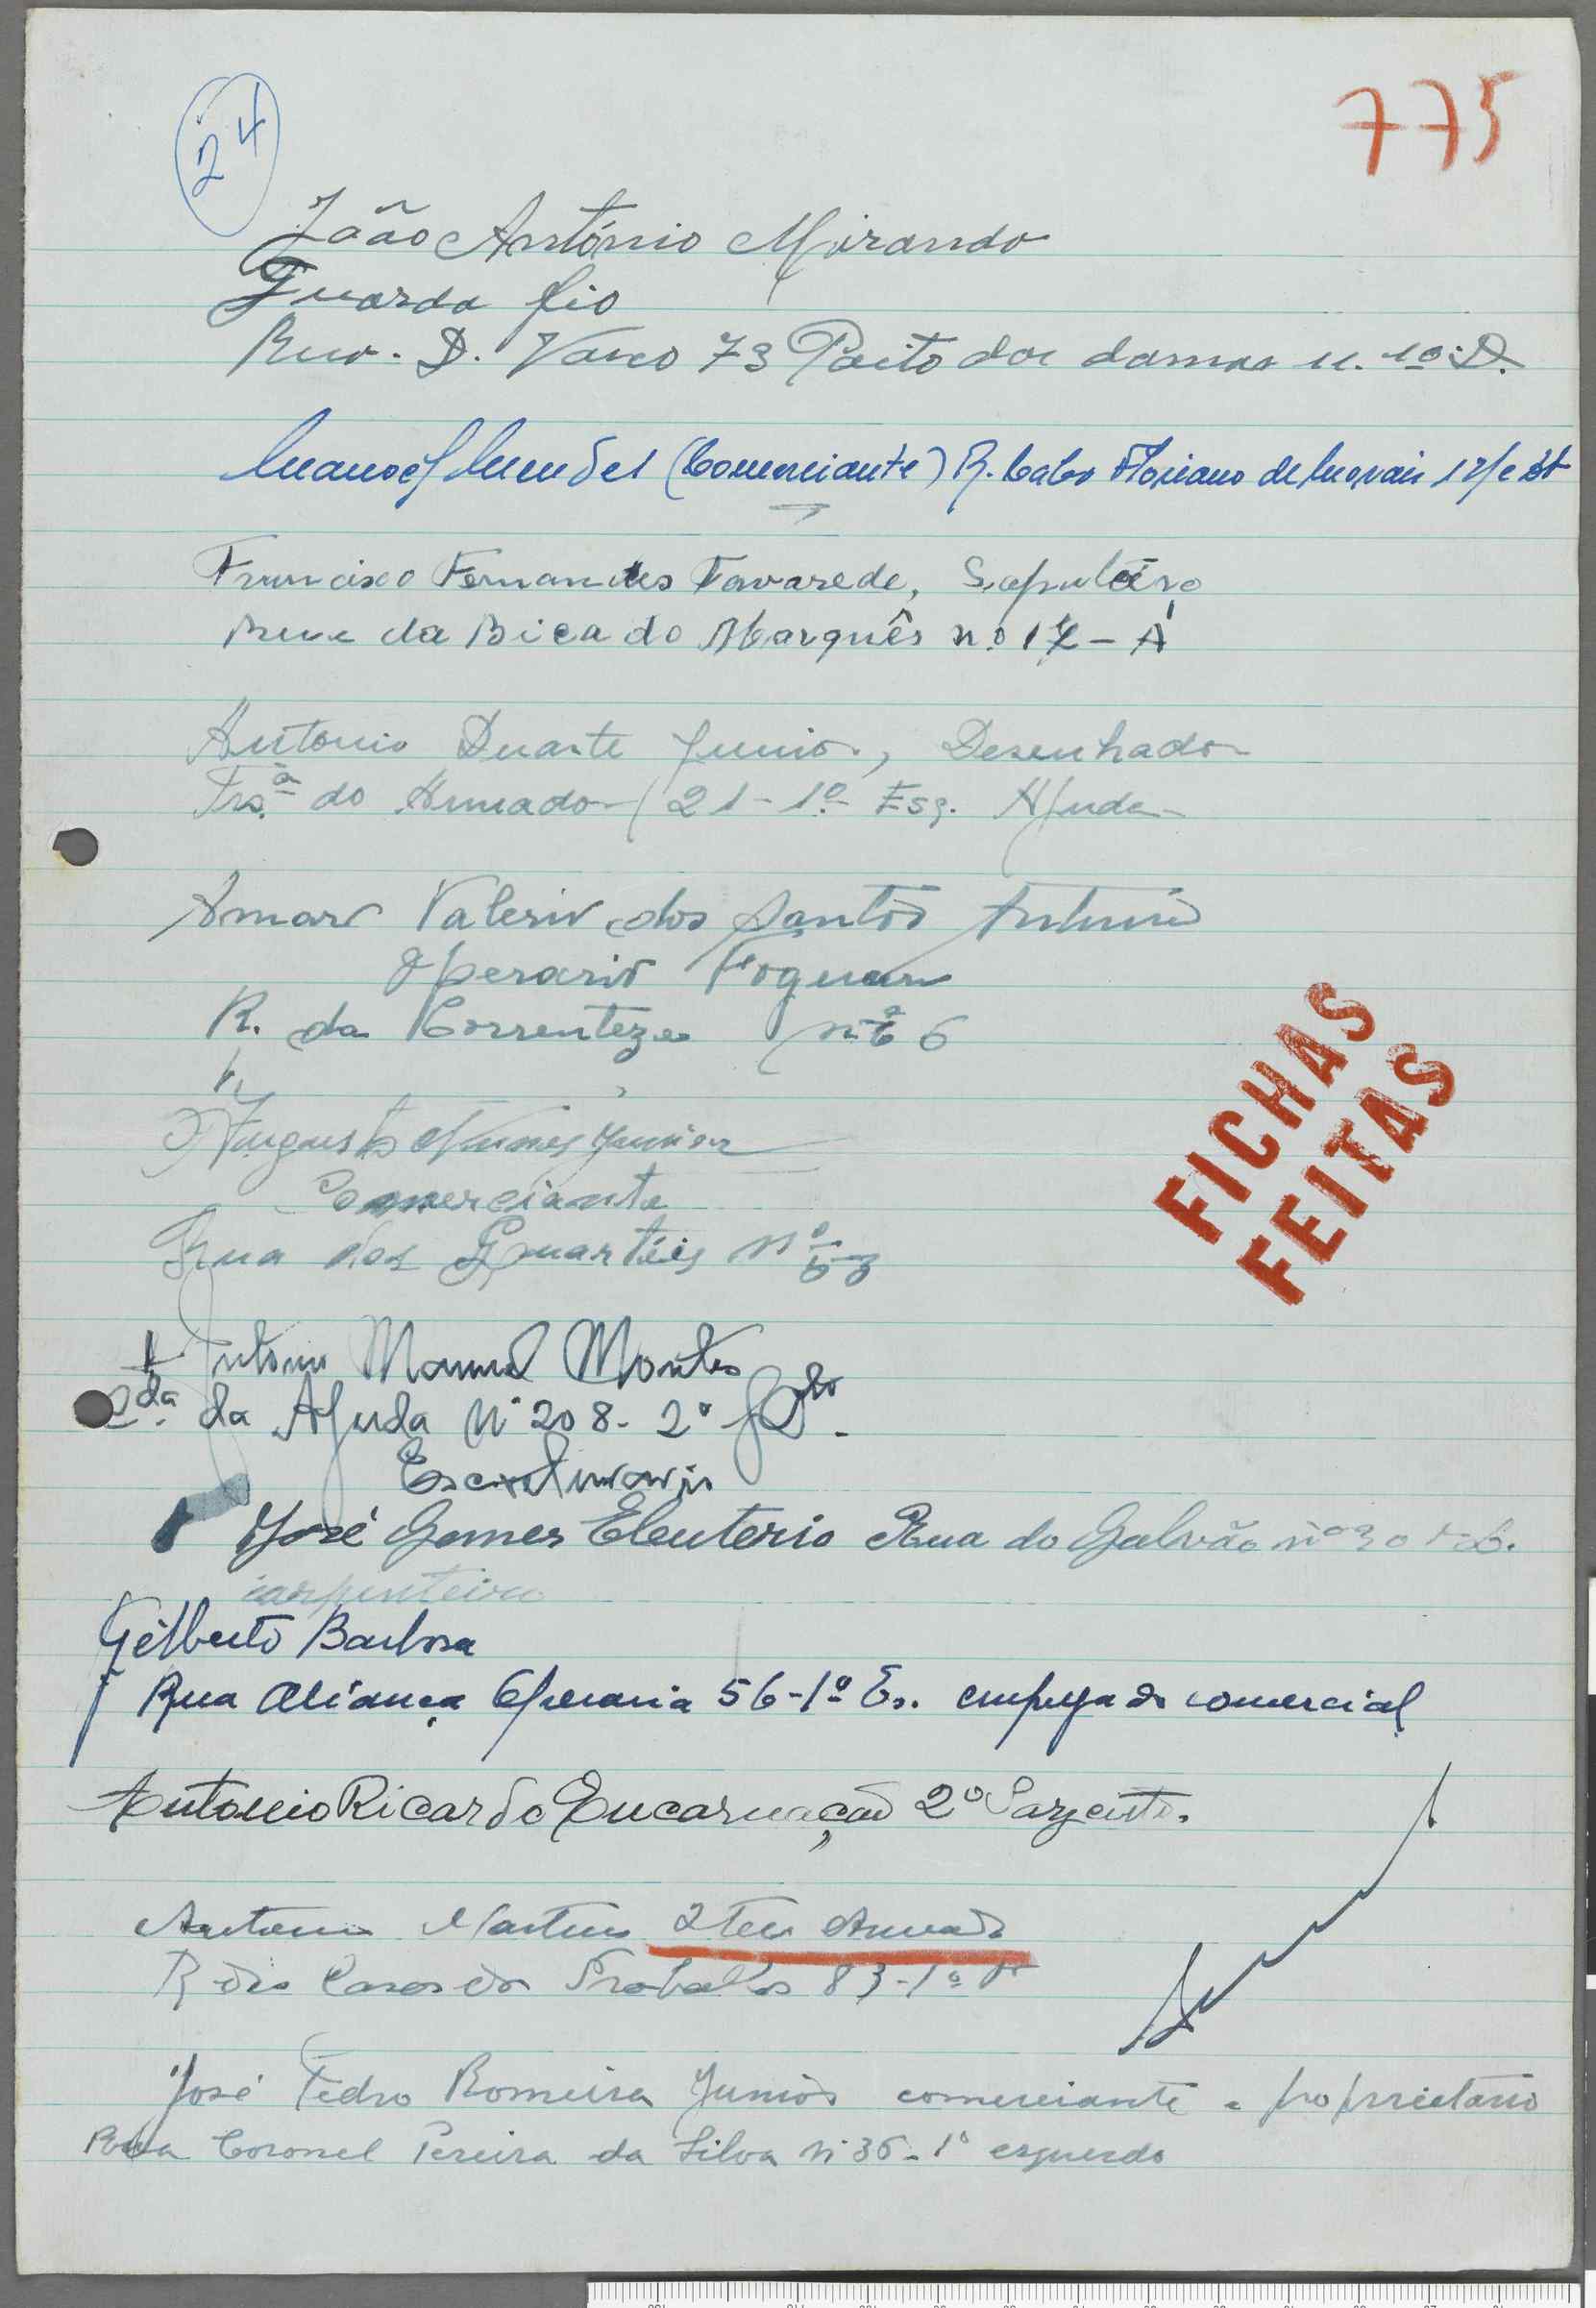 24
775
João António Mirando
Guarda fio
Rua. D. Vasco 73 Pateo das damas n. 1º D.
Manoel Mendes (Comerciante) R. Cabo Floriano de Morais 1 r/c
Francisco Fernandes Tavarede,
Rua da Bica do Marquês n.o 17-A
Antonio Duarte Junior, Desenhador
Trs.ª do Armador 21-1º Esq. Ajuda
Amaro Valerio dos Santos
Operario
R. da Correnteza nº 6
Augusto Nunes Junior
Comerciante
Rua dos Quartéis nº
Antonio Manuel Montes
da Ajuda Nº 208-2º
Escriturario
José Gomes Eleuterio Rua do Galvão nº
carpenteiro
Gilberto Barbosa
Rua Aliança Operaria 56-1º Es. empregado comercial
Antonio Ricardo Encarnação 2º Sargento.
Antonio Martins 2 Ten Armada
R das Casas do Trabalho 83-1º
José Pedro Romeira Junior comerciante e proprietario
Rua Coronel Pereira da Silva Nº 36-1º esquerdo
FICHAS
FEITAS